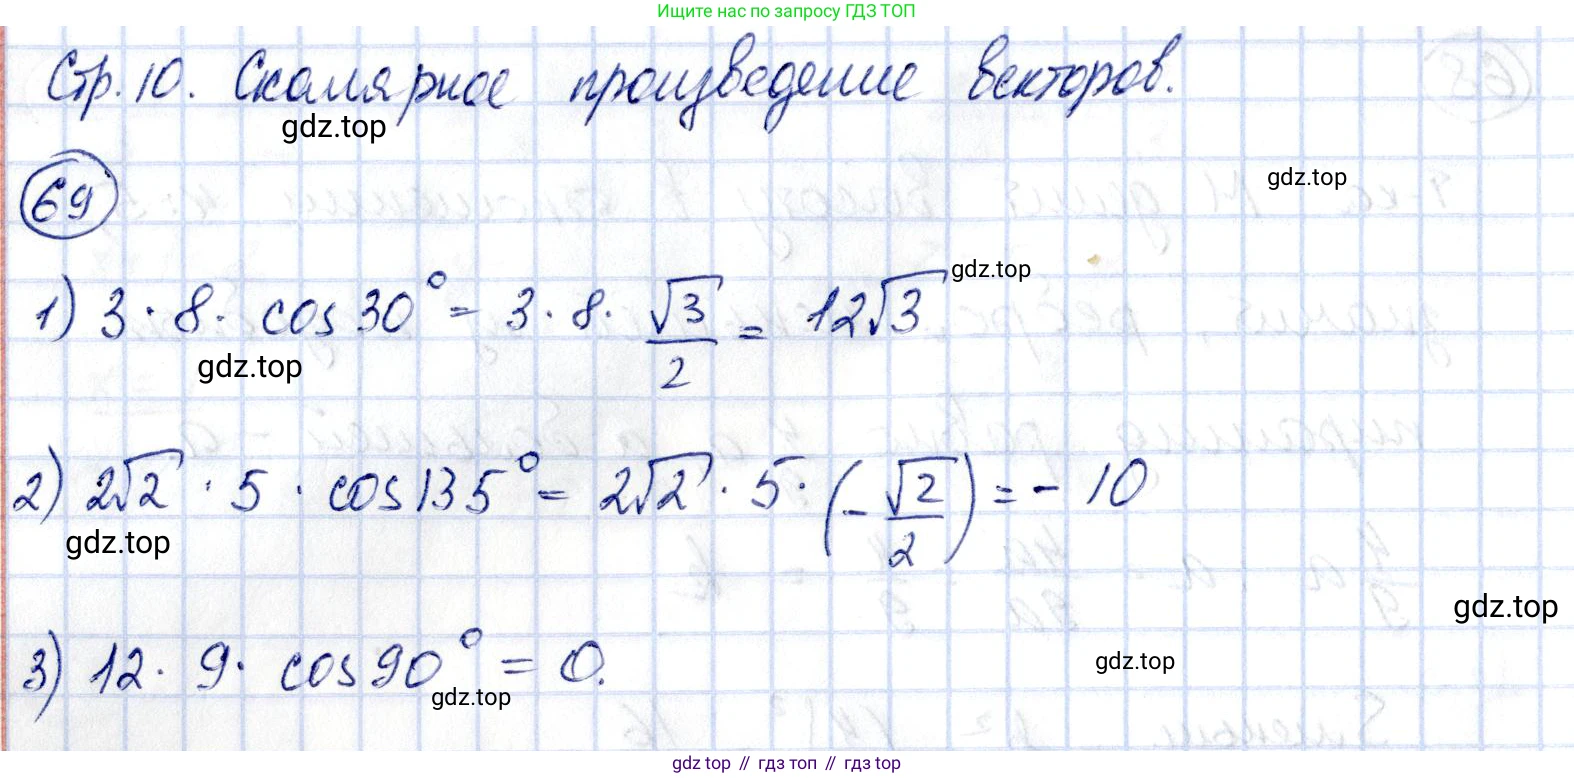 Ищите нас по запросу ГДЗ ТОП
Стр. 10. Скалярное произведение векторов.
gdz.top
gdz.top
69
gdz.top
1) 3 · 8 · cos 30° = 3 · 8 · √3/2 = 12√3
gdz.top
2) 2√2 · 5 · cos 135° = 2√2 · 5 · (-√2/2) = - 10
gdz.top
gdz.top
3) 12 · 9 · cos 90° = 0.
gdz.top
gdz.top
gdz top // гдз топ // гдз top